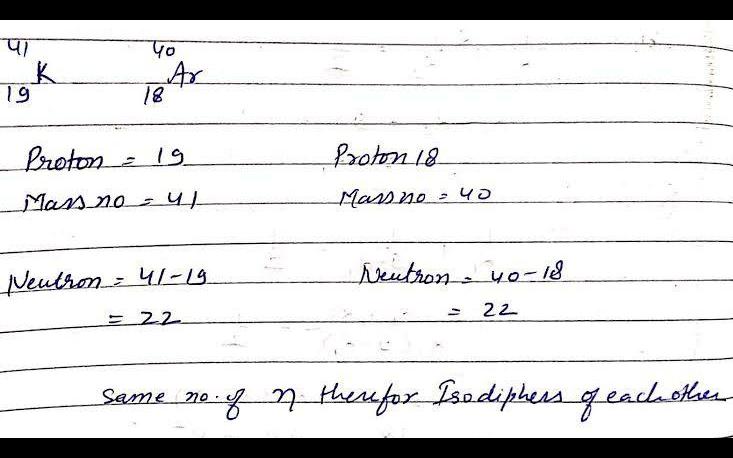 41 40
K Ar
19 18
Proton = 19 Proton 18
Mass no = 41 Mass no = 40
Neutron = 41-19 Neutron = 40-18
= 22 = 22
Same no. of n therefor Isodiphers of each other